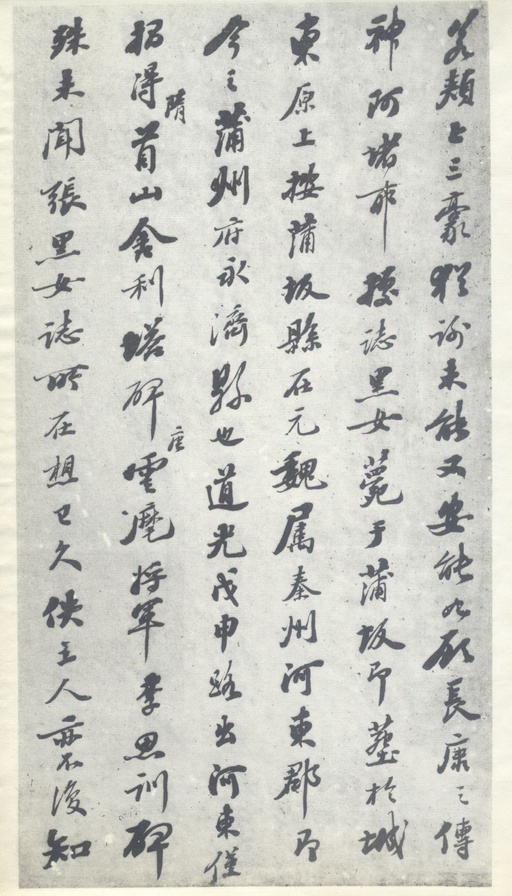 若頰上三豪猶謝未能又安能如顧長康之傳
神阿堵耶據誌黑女薨于蒲坂即葬於城
東原上按蒲坂縣在元魏屬秦州河東郡即
今之蒲州府永濟縣也道光戊申路出河東僅
搨得隋首山舍利塔碑唐雲麾將軍李思訓碑
殊未聞張黑女誌所在想已久佚土人亦不復知